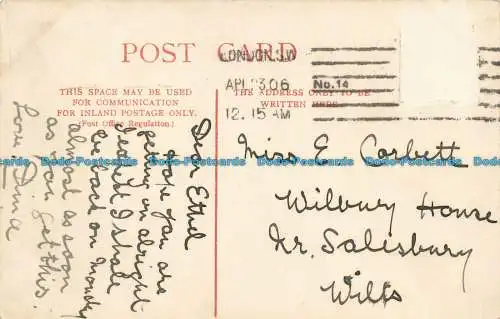 POST CARD
THIS SPACE MAY BE USED
FOR COMMUNICATION
FOR INLAND POSTAGE ONLY.
(Post Office Regulation.)
THE ADDRESS ONLY TO BE
WRITTEN HERE.
LONDON.S.W
AP 23 06
12.15 AM
No.14
Dear Ethel
I hope you are
getting on alright
I shall
be back on Monday
almost as soon
as you get this.
Love
Miss E Corbett
Wilbury House
Nr. Salisbury
Wilts
Dodo-Postcards Dodo-Postcards Dodo-Postcards Dodo-Postcards Dodo-Postcards